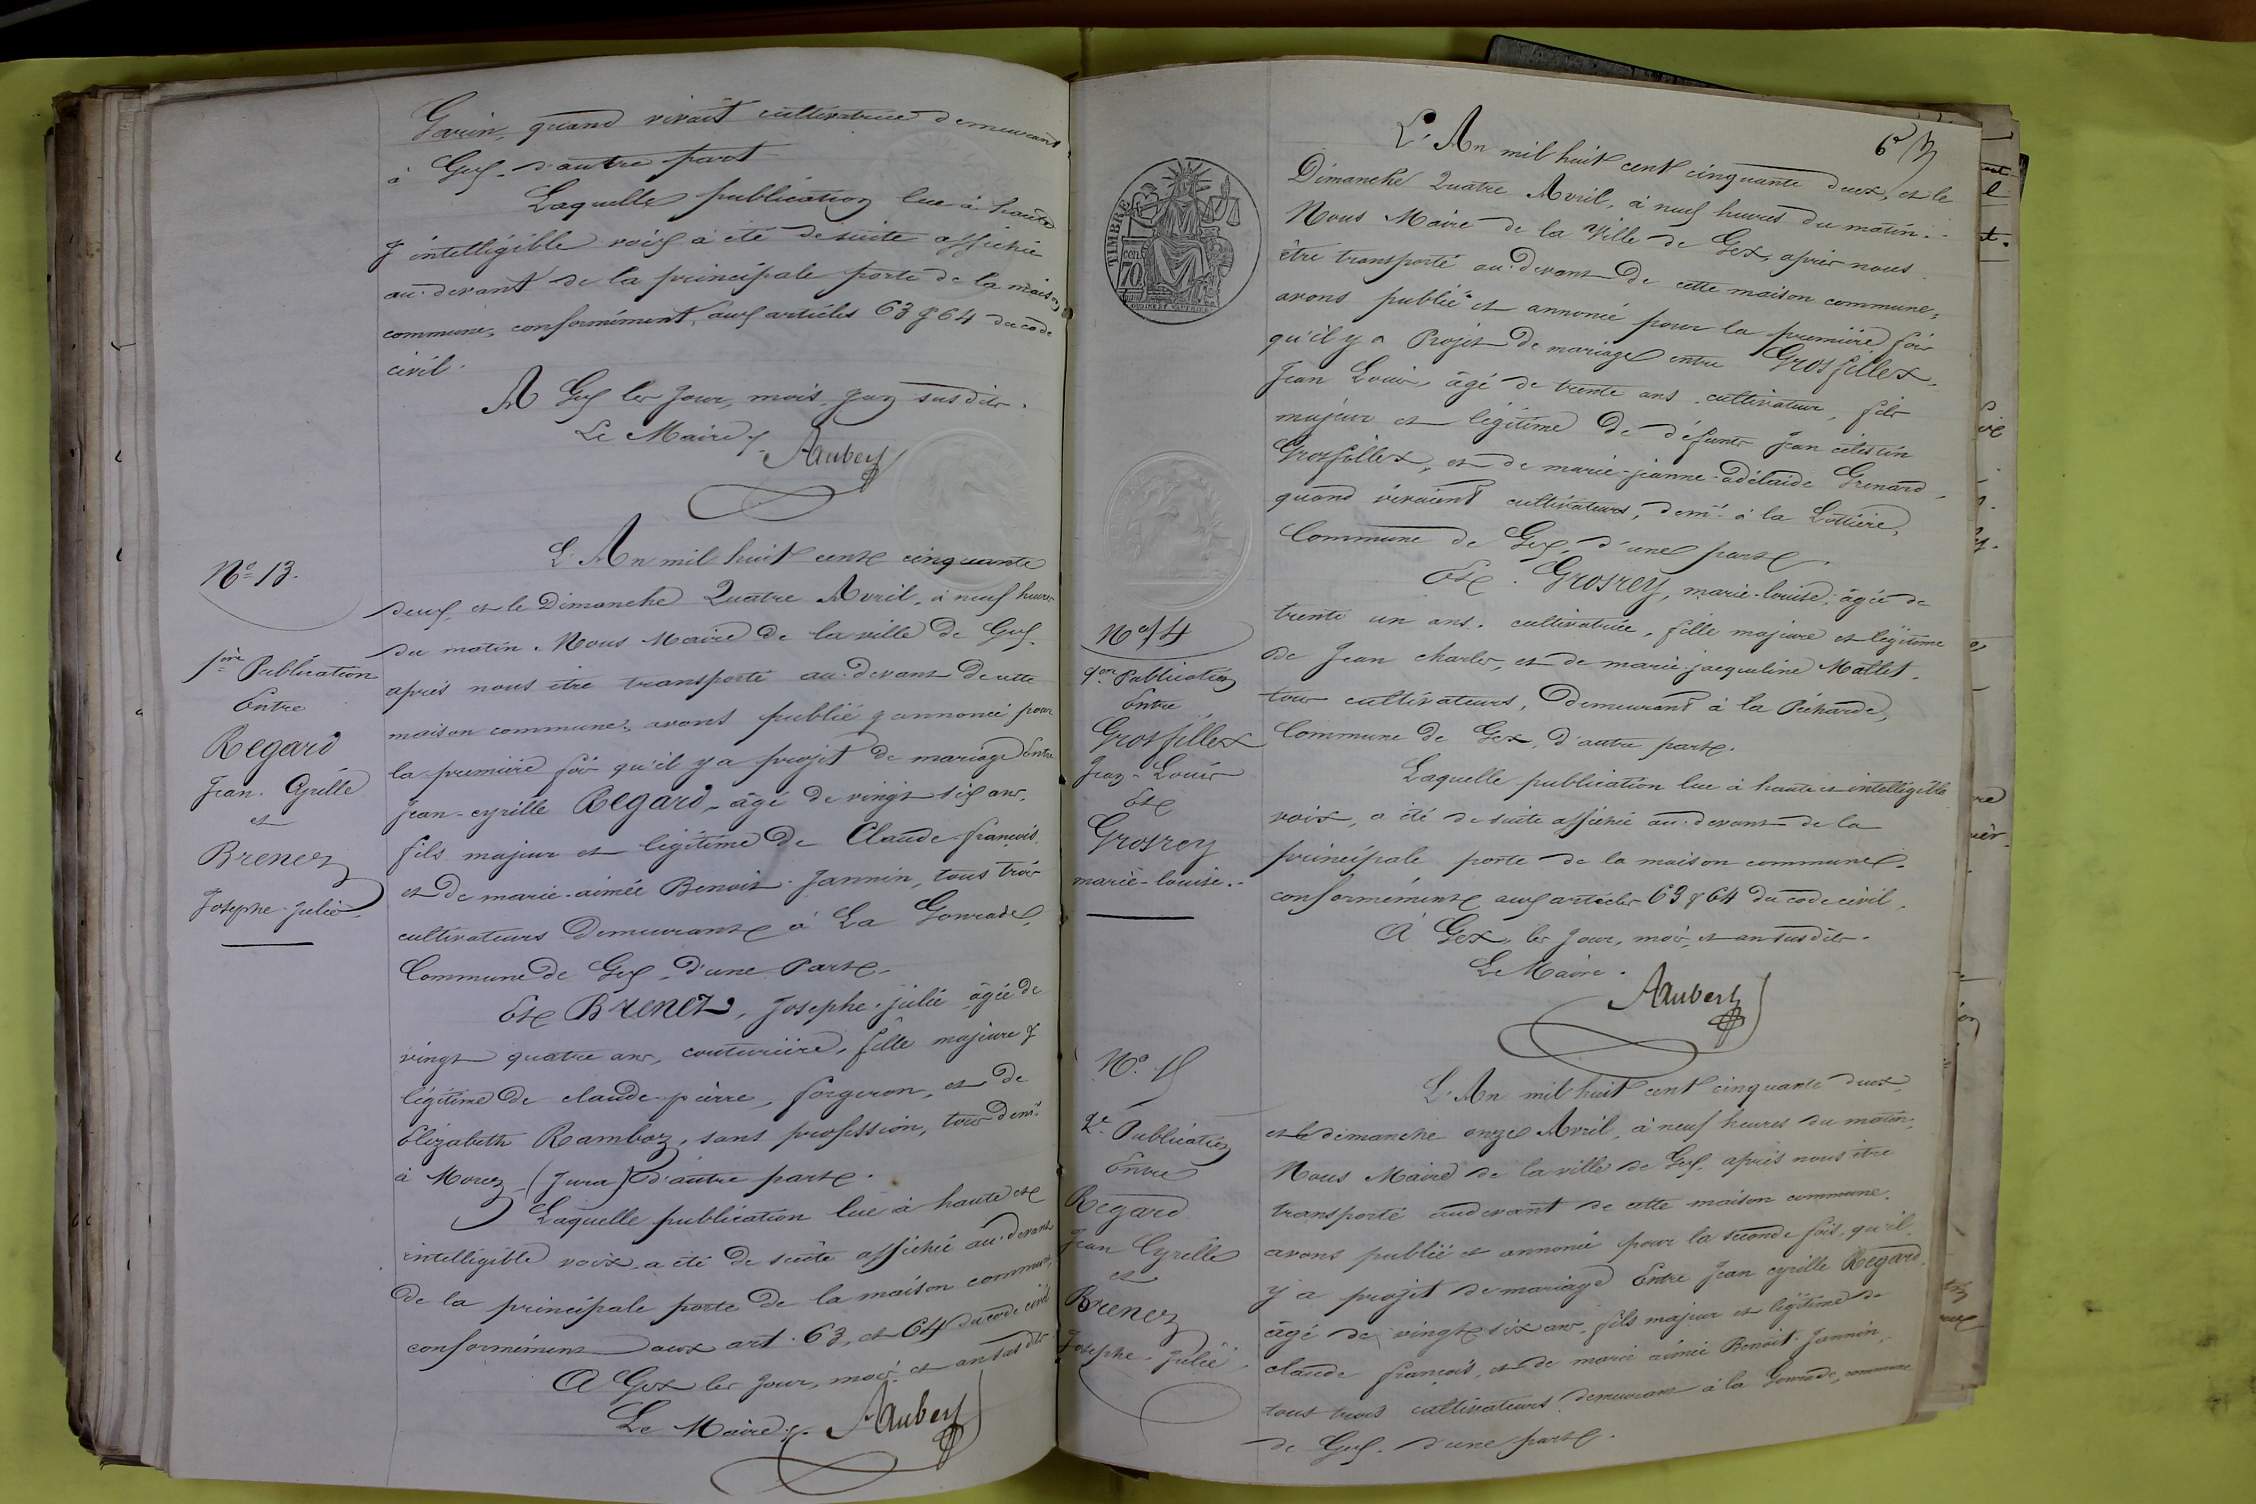 Garin, quand vivait cultivatrice demeurant
à Gex. d'autre part
Laquelle publication lue à haute
& intelligible voix a été de suite affichée
au-devant de la principale porte de la maison
commune, conformément, aux articles 63 & 64 du code
civil.
A Gex les jour, mois, & an susdits.
Le Maire,
Aubert
N° 13.
1ère Publication
Entre
Regard
Jean. Cyrille
et
Brenez
Josephe-Julie.
L'An mil huit cent cinquante
deux, et le Dimanche Quatre Avril, à neuf heures
du matin. Nous Maire de la ville de Gex.
après nous être transporté au-devant de cette
maison commune, avons publié & annoncé pour
la première fois qu'il y a projet de mariage Entre
Jean-cyrille Regard, âgé de vingt six ans,
fils majeur et légitime De Claude-françois
et De marie-aimée Benoit-Jannin, tous trois
cultivateurs Demeurant à La Gonrade,
Commune de Gex, D'une Part.
Et Brenez, Josephe-julie âgée de
vingt quatre ans, couturière, fille majeure &
légitime De claude-pierre, forgeron, et De
Elizabeth Ramboz, sans profession, tous demt.
à Morez (Jura) d'autre part.
Laquelle publication lue à haute et
intelligible voix a été de suite affichée au-devant
de la principale porte de la maison commune,
conformément aux art. 63, et 64 du code civil
A Gex les jour, mois et an susdits.
Le Maire.
Aubert
TIMBRE
70
L'An mil huit cent cinquante deux, et le
Dimanche Quatre Avril, à neuf heures du matin.
Nous Maire de la Ville de Gex, après nous
être transporté au-devant De cette maison commune,
avons publié et annoncé pour la première fois
qu'il y a Projet De mariage entre Grosfillex
Jean Louis, âgé de trente ans, cultivateur, fils
majeur et légitime De défunts Jean célestin
Grosfillex, et de marie-jeanne-adélaide Grenard,
quand vivaient cultivateurs, demt. à la
Commune de Gex, d'une part.
Et Grosrey, marie-louise, âgée de
trente un ans. cultivatrice, fille majeure et légitime
de Jean charles, et de marie-jacqueline Mallet.
tous cultivateurs, Demeurant à la Picharde,
Commune de Gex, d'autre part.
Laquelle publication lue à haute et intelligible
voix, a été de suite affichée au-devant de la
principale porte de la maison commune,
conformément aux articles 63 & 64 du code civil.
A Gex, les jour, mois, et an susdits.
Le Maire.
Aubert
N° 14
Publication
Entre
Grosfillex
Jean-Louis
Et
Grosrey
marie-louise.
N° 15
2e Publication
Entre
Regard
Jean Cyrille
et
Brenez
Josephe-Julie.
L'An mil huit cent cinquante deux
et le dimanche onze Avril, à neuf heures du matin,
Nous Maire de la ville de Gex, après nous être
transporté audevant de cette maison commune.
avons publié et annoncé pour la seconde fois, qu'il
y a projet de mariage Entre Jean cyrille Regard,
âgé de vingt six ans, fils majeur et légitime de
claude françois, et de marie aimée Benoit-Jannin,
tous trois cultivateurs demeurant à la Gonrade, commune
de Gex. d'une part.